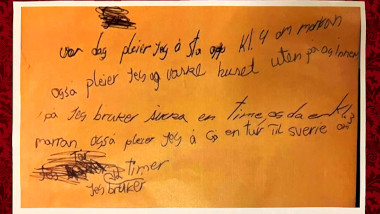 var dag pleier Jeg å sta opp Kl. 4 om morran
også pleier Jeg og vaske huset uten
på Jeg bruker sirka en Time og da er Kl
morran også pleier Jeg å gå en tur til sverie
Tar
timer
Jeg bruker